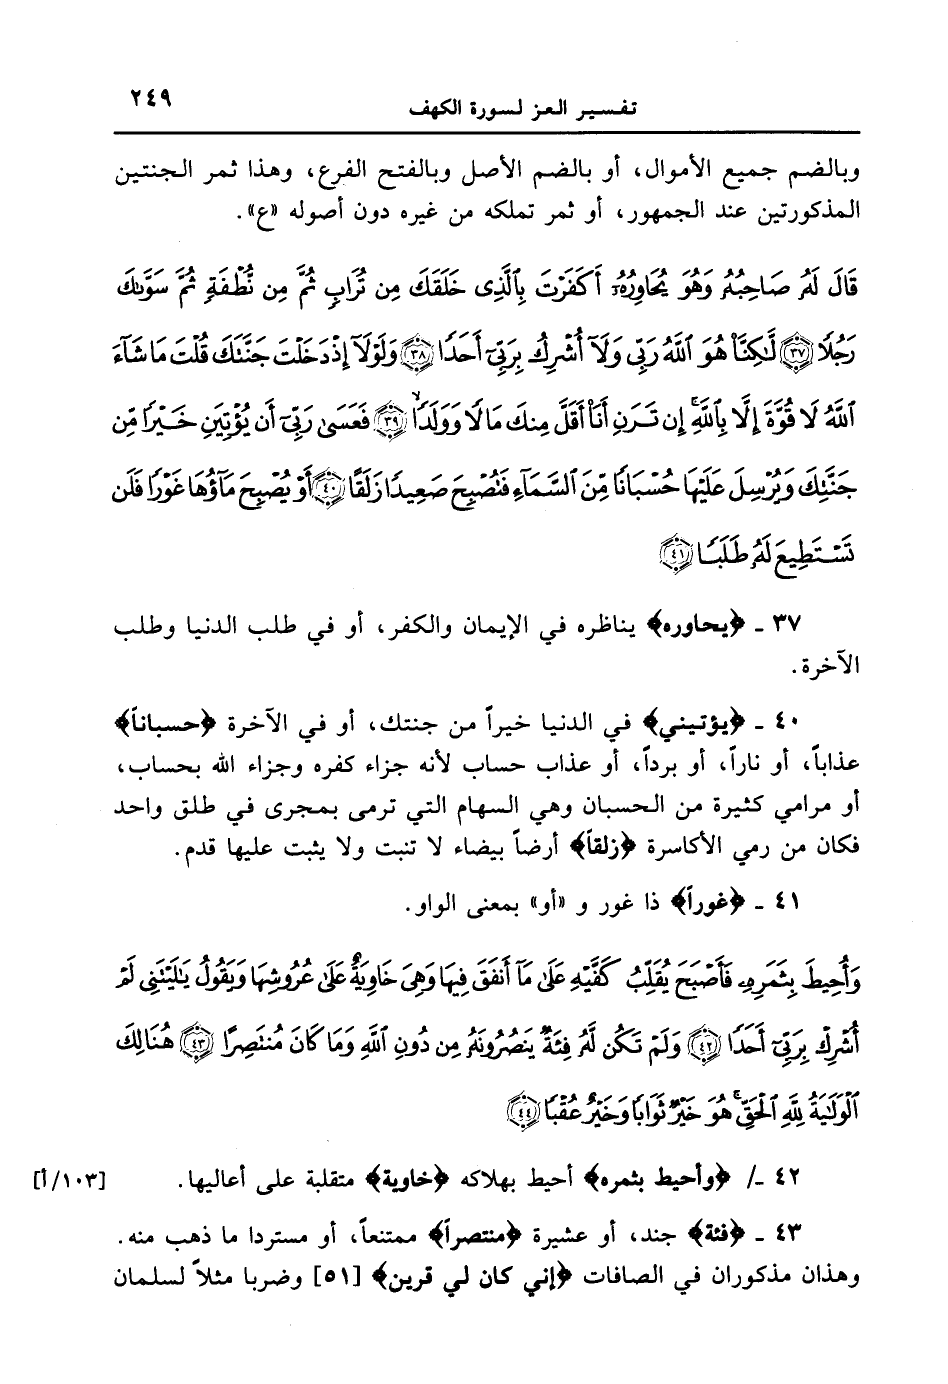 تفسير العز لسورة الكهف ٢٤٩
وبالضم جميع الأموال، أو بالضم الأصل وبالفتح الفرع، وهذا ثمر الجنتين
المذكورتين عند الجمهور، أو ثمر تملكه من غيره دون أصوله «ع».
قَالَ لَهُۥ صَاحِبُهُۥ وَهُوَ يُحَاوِرُهُۥٓ أَكَفَرْتَ بِٱلَّذِى خَلَقَكَ مِن تُرَابٍ ثُمَّ مِن نُّطْفَةٍ ثُمَّ سَوَّىٰكَ
رَجُلًا ﴿٣٧﴾ لَّٰكِنَّا۠ هُوَ ٱللَّهُ رَبِّى وَلَآ أُشْرِكُ بِرَبِّىٓ أَحَدًا ﴿٣٨﴾ وَلَوْلَآ إِذْ دَخَلْتَ جَنَّتَكَ قُلْتَ مَا شَآءَ
ٱللَّهُ لَا قُوَّةَ إِلَّا بِٱللَّهِ ۚ إِن تَرَنِ أَنَا۠ أَقَلَّ مِنكَ مَالًا وَوَلَدًا ﴿٣٩﴾ فَعَسَىٰ رَبِّىٓ أَن يُؤْتِيَنِ خَيْرًا مِّن
جَنَّتِكَ وَيُرْسِلَ عَلَيْهَا حُسْبَانًا مِّنَ ٱلسَّمَآءِ فَتُصْبِحَ صَعِيدًا زَلَقًا ﴿٤٠﴾ أَوْ يُصْبِحَ مَآؤُهَا غَوْرًا فَلَن
تَسْتَطِيعَ لَهُۥ طَلَبًا ﴿٤١﴾
٣٧ ـ ﴿يحاوره﴾ يناظره في الإيمان والكفر، أو في طلب الدنيا وطلب
الآخرة.
٤٠ ـ ﴿يؤتيني﴾ في الدنيا خيراً من جنتك، أو في الآخرة ﴿حسباناً﴾
عذاباً، أو ناراً، أو برداً، أو عذاب حساب لأنه جزاء كفره وجزاء الله بحساب،
أو مرامي كثيرة من الحسبان وهي السهام التي ترمى بمجرى في طلق واحد
فكان من رمي الأكاسرة ﴿زلقاً﴾ أرضاً بيضاء لا تنبت ولا يثبت عليها قدم.
٤١ ـ ﴿غوراً﴾ ذا غور و «أو» بمعنى الواو.
وَأُحِيطَ بِثَمَرِهِۦ فَأَصْبَحَ يُقَلِّبُ كَفَّيْهِ عَلَىٰ مَآ أَنفَقَ فِيهَا وَهِىَ خَاوِيَةٌ عَلَىٰ عُرُوشِهَا وَيَقُولُ يَٰلَيْتَنِى لَمْ
أُشْرِكْ بِرَبِّىٓ أَحَدًا ﴿٤٢﴾ وَلَمْ تَكُن لَّهُۥ فِئَةٌ يَنصُرُونَهُۥ مِن دُونِ ٱللَّهِ وَمَا كَانَ مُنتَصِرًا ﴿٤٣﴾ هُنَالِكَ
ٱلْوَلَٰيَةُ لِلَّهِ ٱلْحَقِّ ۚ هُوَ خَيْرٌ ثَوَابًا وَخَيْرٌ عُقْبًا ﴿٤٤﴾
٤٢ ـ/ ﴿وأحيط بثمره﴾ أحيط بهلاكه ﴿خاوية﴾ متقلبة على أعاليها. [١٠٣/أ]
٤٣ ـ ﴿فئة﴾ جند، أو عشيرة ﴿منتصراً﴾ ممتنعاً، أو مستردا ما ذهب منه.
وهذان مذكوران في الصافات ﴿إني كان لي قرين﴾ [٥١] وضربا مثلاً لسلمان